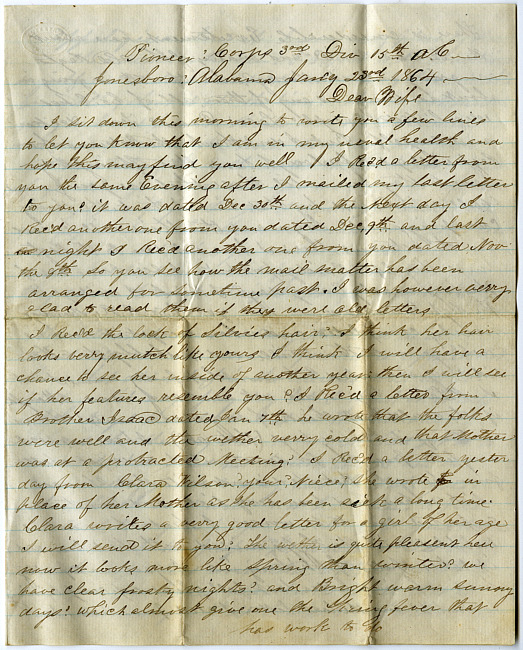 Pioneer: Corps 3rd Div 15th A.C.
Jonesboro: Alabama Jany 23rd 1864
Dear Wife
I sit down this morning to write you a few lines
to let you know that I am in my usual health and
hope this may find you well I Recd a letter from
you the same Evening after I mailed my last letter
to you? it was dated Dec 30th and the next day I
Recd another one from you dated Dec 9th and last
night I Recd another one from you dated Nov
the 9th so you see how the mail matter has been
arranged for sometime past. I was however verry
glad to read them if they were old letters
I Recd the lock of Silvies hair? I think her hair
looks verry mutch like yours & think I will have a
chance to see her inside of another year then I will see
if her features resemble you? I Rec'd a letter from
Brother Isaac dated Jan 7th he wrote that the folks
were well and the wether verry cold and that Mother
was at a protracted Meeting? I Recd a letter yester
day from Clara Wilson your Niece? she wrote in
place of her Mother as she has been sick a long time
Clara writes a verry good letter for a girl of her age
I will send it to you? The wether is quite pleasent here
now it looks more like Spring than winter? we
have clear frosty nights? and Bright warm sunny
days? which almost give one the Spring fever that
has work to